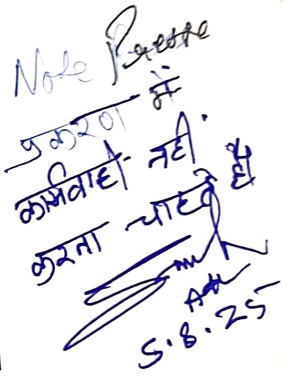 Note Presse
प्रकरण में
कार्यवाही नही
करना चाहते हैं
Adv
5.8.25